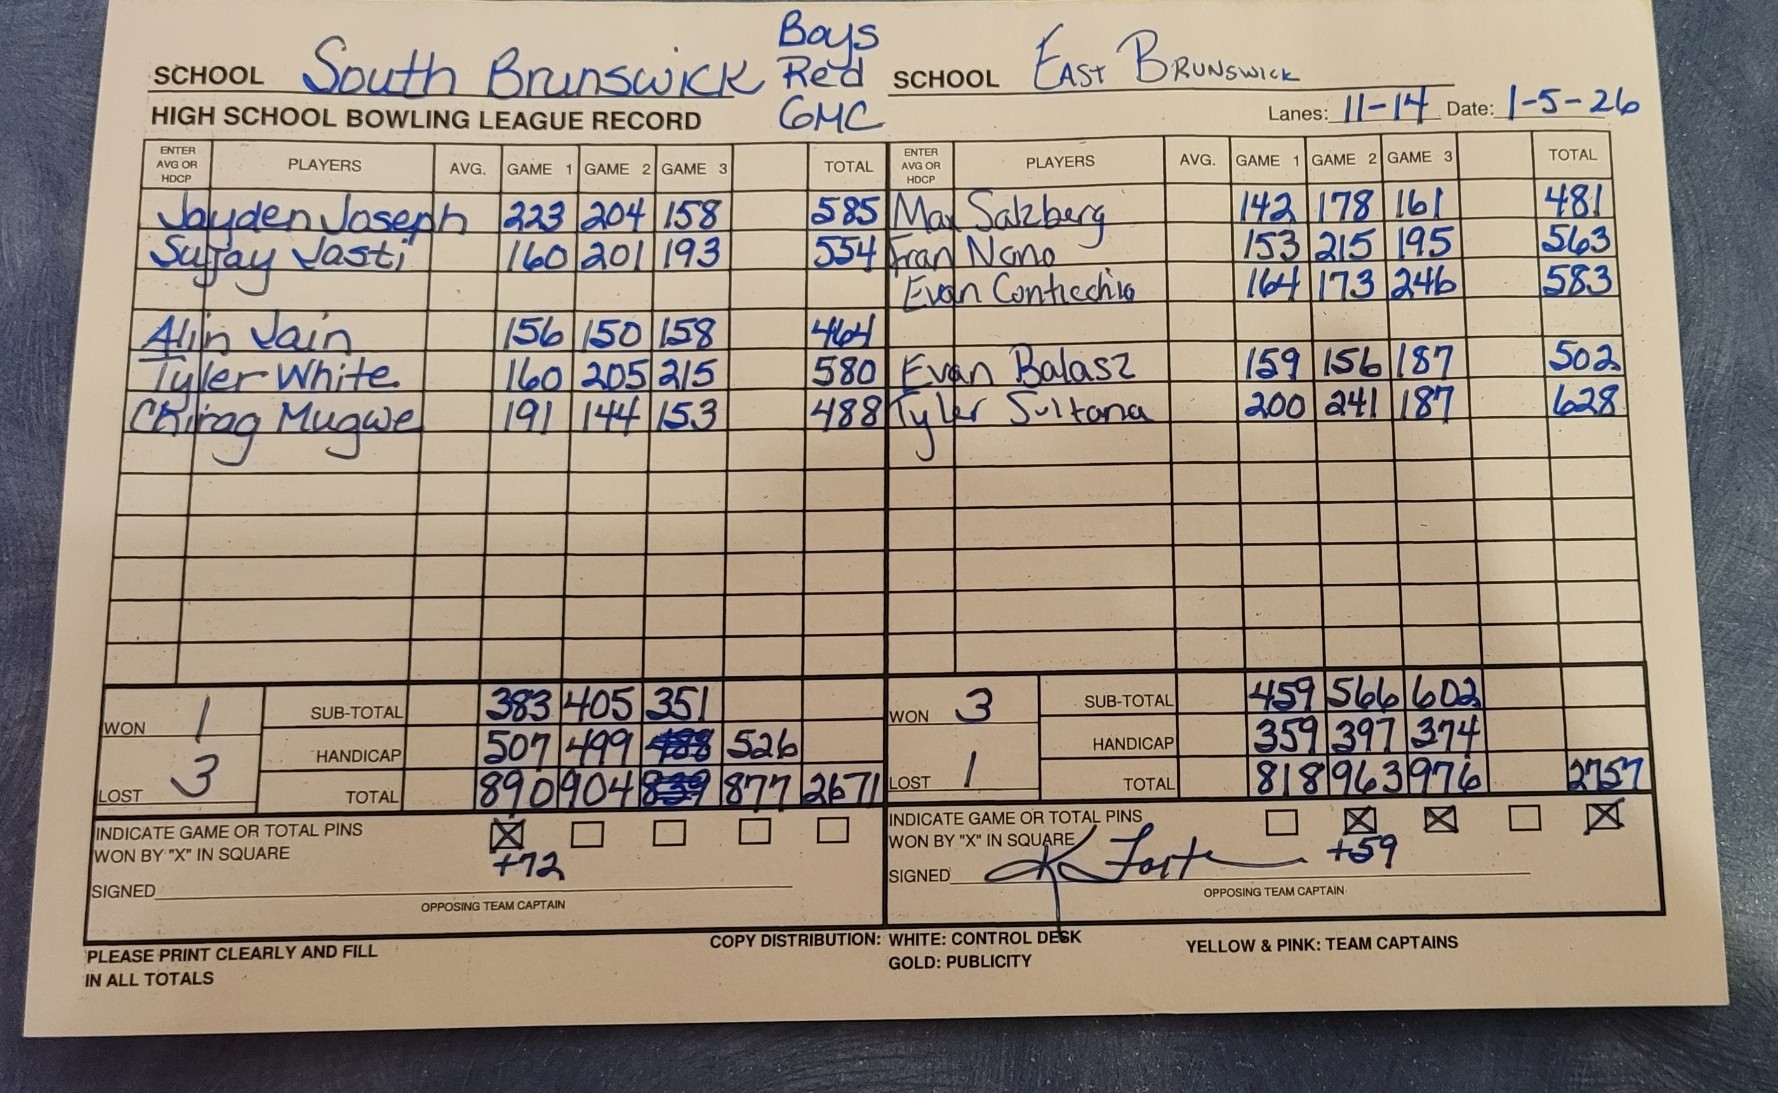 SCHOOL South Brunswick Boys Red GMC SCHOOL East Brunswick
HIGH SCHOOL BOWLING LEAGUE RECORD Lanes: 11-14 Date: 1-5-26
ENTER AVG OR HDCP PLAYERS AVG. GAME 1 GAME 2 GAME 3 TOTAL ENTER AVG OR HDCP PLAYERS AVG. GAME 1 GAME 2 GAME 3 TOTAL
Jayden Joseph 223 204 158 585 Max Salzberg 142 178 161 481
Sujay Jasti 160 201 193 554 Fran Nono 153 215 195 563
Evan Conticchio 164 173 246 583
Jain 156 150 158 464
Tyler White 160 205 215 580 Evan Balasz 159 156 187 502
Chirag Mugwe 191 144 153 488 Tyler Sultana 200 241 187 628
WON 1 SUB-TOTAL 383 405 351 WON 3 SUB-TOTAL 459 566 602
HANDICAP 507 499 488 526 HANDICAP 359 397 374
LOST 3 TOTAL 890 904 839 877 2671 LOST 1 TOTAL 818 963 976 2757
INDICATE GAME OR TOTAL PINS WON BY "X" IN SQUARE X INDICATE GAME OR TOTAL PINS WON BY "X" IN SQUARE X X X
+72 +59
SIGNED SIGNED K Forte
OPPOSING TEAM CAPTAIN OPPOSING TEAM CAPTAIN
PLEASE PRINT CLEARLY AND FILL IN ALL TOTALS COPY DISTRIBUTION: WHITE: CONTROL DESK YELLOW & PINK: TEAM CAPTAINS
GOLD: PUBLICITY